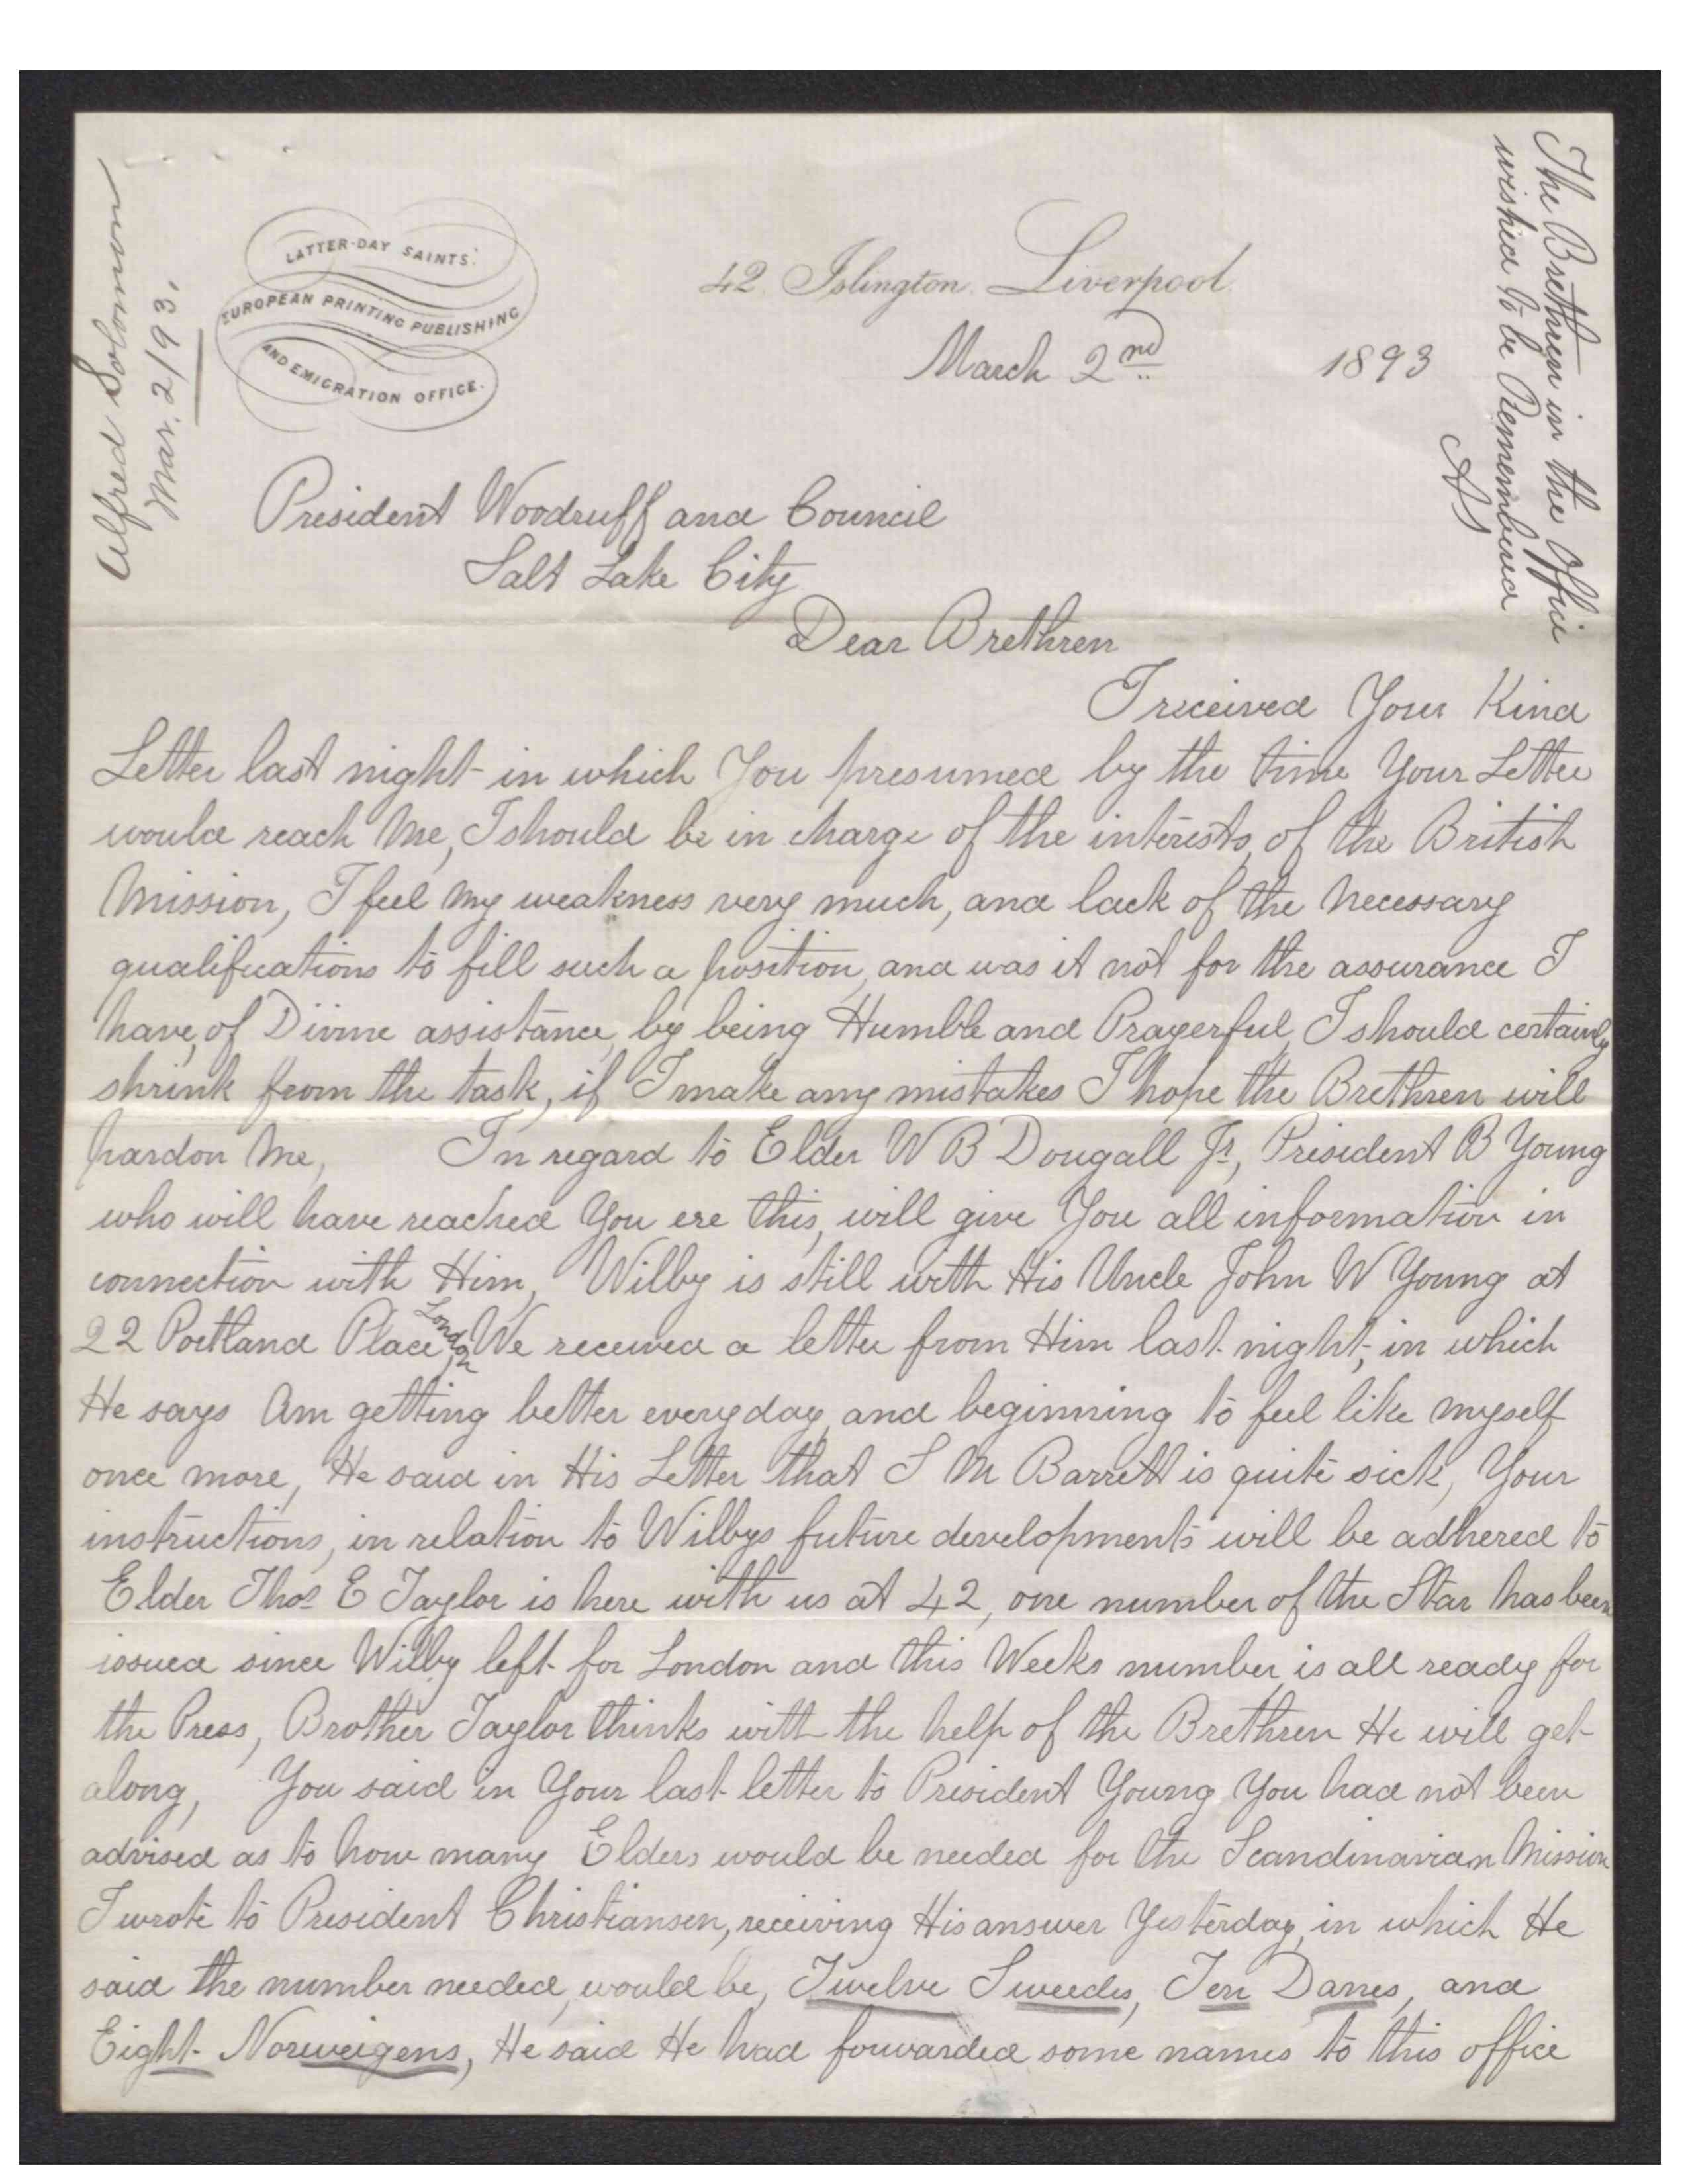 Alfred Solomon
Mar. 2/93.
LATTER-DAY SAINTS'
EUROPEAN PRINTING PUBLISHING
AND EMIGRATION OFFICE.
42 Islington Liverpool
March 2nd 1893
The Brethren in the Office
wished to be Remembered
AS
President Woodruff and Council
Salt Lake City
Dear Brethren
I received Your Kind
Letter last night in which You presumed by the time Your Letter
would reach Me, I should be in charge of the interests, of the British
Mission, I feel My weakness very much, and lack of the Necessary
qualifications to fill such a position, and was it not for the assurance I
have, of Divine assistance, by being Humble and Prayerful, I should certainly
shrink from the task, if I make any mistakes I hope the Brethren will
pardon Me, In regard to Elder W B Dougall Jr, President B Young
who will have reached You ere this, will give You all information in
connection with Him, Wilby is still with His Uncle John W Young at
22 Portland Place, London We received a letter from Him last night, in which
He says Am getting better every day, and beginning to feel like myself
once more, He said in His Letter that S M Barrett is quite sick, Your
instructions, in relation to Wilbys future developments will be adhered to
Elder Thos E Taylor is here with us at 42, one number of the Star has been
issued since Wilby left for London and this Weeks number is all ready for
the Press, Brother Taylor thinks with the help of the Brethren He will get
along, You said in Your last letter to President Young You had not been
advised as to how many Elders would be needed for the Scandinavian Mission
I wrote to President Christiansen, receiving His answer Yesterday, in which He
said the number needed, would be, Twelve Sweedes, Ten Danes, and
Eight Norweigens, He said He had forwarded some names to this office